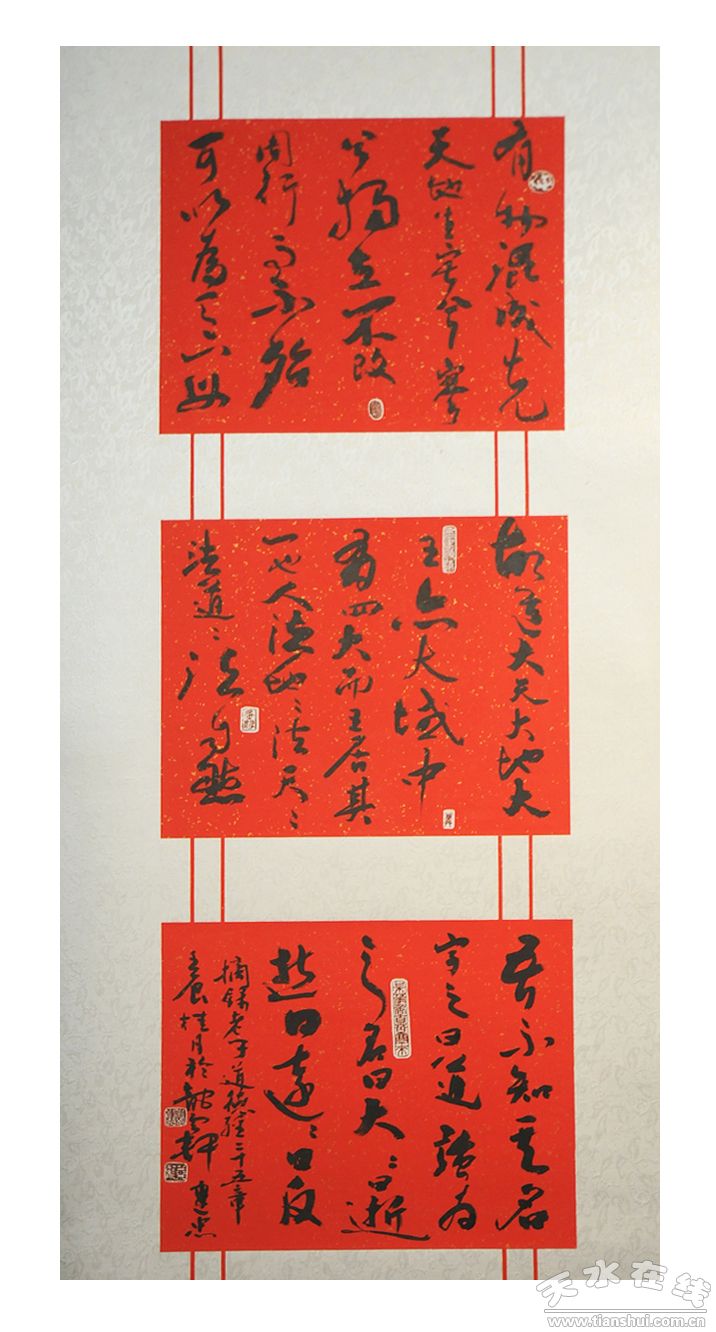 有物混成先
天地生寂兮寥
兮獨立不改
周行而不殆
可以為天下母
故道大天大地大
王亦大域中
有四大而王居其
一也人法地〻法天〻
法道〻法自然
吾不知其名
字之曰道強為
之名曰大〻曰逝
逝曰遠〻曰反
摘録老子道德經二十五章
壬辰桂月於軒
天水在线
www.tianshui.com.cn